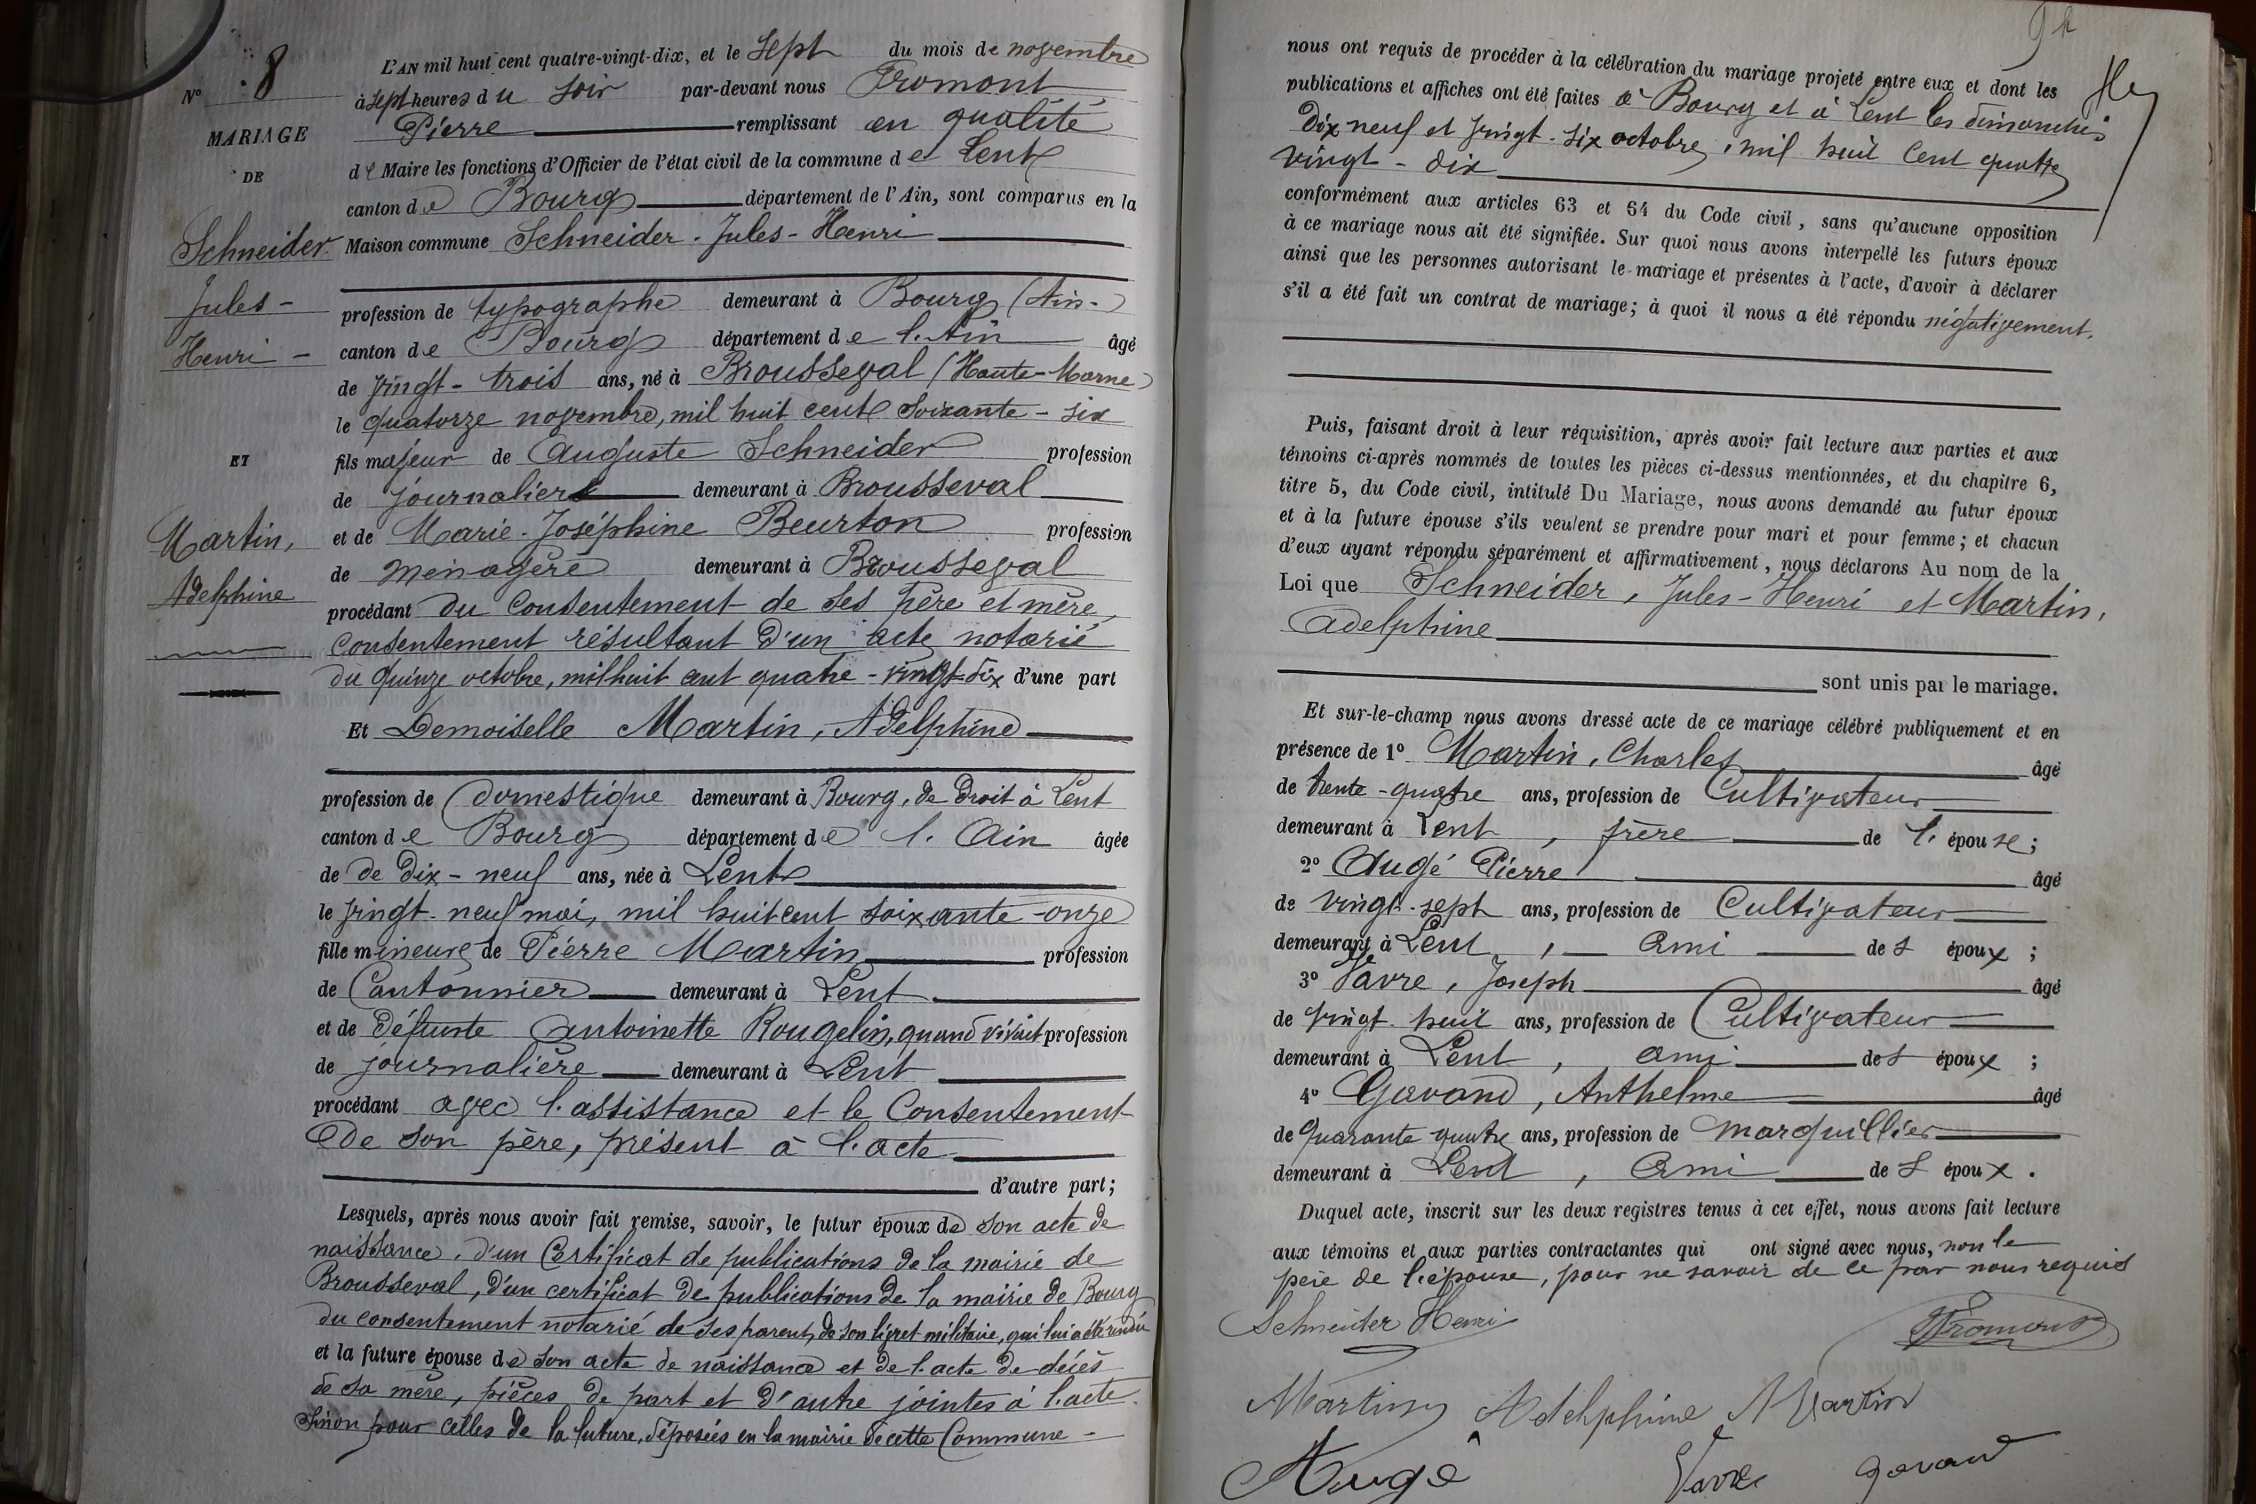 N° 8
MARIAGE
DE
Schneider
Jules -
Henri -
ET
Martin,
Adelphine
L'AN mil huit cent quatre-vingt-dix, et le sept du mois de novembre
à sept heures du soir par-devant nous Fromont
Pierre remplissant en qualité
de Maire les fonctions d'Officier de l'état civil de la commune de Lent
canton de Bourg département de l'Ain, sont comparus en la
Maison commune Schneider - Jules - Henri
profession de typographe demeurant à Bourg (Ain -)
canton de Bourg département de l'Ain âgé
de vingt - trois ans, né à Brousseval (Haute-Marne)
le quatorze novembre, mil huit cent soixante - six
fils majeur de Auguste Schneider profession
de journalier demeurant à Brousseval
et de Marie - Joséphine Beurton profession
de ménagère demeurant à Brousseval
procédant du consentement de ses père et mère,
consentement résultant d'un acte notarié
du quinze octobre, mil huit cent quatre - vingt-dix d'une part
Et Demoiselle Martin, Adelphine
profession de domestique demeurant à Bourg, de droit à Lent
canton de Bourg département de l'Ain âgée
de de dix - neuf ans, née à Lent
le vingt - neuf mai, mil huit cent soixante - onze
fille mineure de Pierre Martin profession
de Cantonnier demeurant à Lent
et de défunte Antoinette Rougelin, quand vivait profession
de journalière demeurant à Lent
procédant avec l'assistance et le consentement
de son père, présent à l'acte
d'autre part;
Lesquels, après nous avoir fait remise, savoir, le futur époux de son acte de
naissance, d'un certificat de publications de la mairie de
Brousseval, d'un certificat de publications de la mairie de Bourg
du consentement notarié de ses parents, de son livret militaire, qui lui a été rendu
et la future épouse de son acte de naissance et de l'acte de décès
de sa mère, pièces de part et d'autre jointes à l'acte.
Sinon pour celles de la future, déposées en la mairie de cette Commune -
nous ont requis de procéder à la célébration du mariage projeté entre eux et dont les
publications et affiches ont été faites à Bourg et à Lent les dimanches
Dix neuf et vingt - six octobre, mil huit cent quatre
vingt - dix
conformément aux articles 63 et 64 du Code civil, sans qu'aucune opposition
à ce mariage nous ait été signifiée. Sur quoi nous avons interpellé les futurs époux
ainsi que les personnes autorisant le mariage et présentes à l'acte, d'avoir à déclarer
s'il a été fait un contrat de mariage; à quoi il nous a été répondu négativement.
Puis, faisant droit à leur réquisition, après avoir fait lecture aux parties et aux
témoins ci-après nommés de toutes les pièces ci-dessus mentionnées, et du chapitre 6,
titre 5, du Code civil, intitulé Du Mariage, nous avons demandé au futur époux
et à la future épouse s'ils veulent se prendre pour mari et pour femme; et chacun
d'eux ayant répondu séparément et affirmativement, nous déclarons Au nom de la
Loi que Schneider, Jules - Henri et Martin,
Adelphine
sont unis par le mariage.
Et sur-le-champ nous avons dressé acte de ce mariage célébré publiquement et en
présence de 1° Martin, Charles âgé
de trente - quatre ans, profession de Cultivateur
demeurant à Lent, frère de l'épouse;
2° Augé Pierre âgé
de vingt - sept ans, profession de Cultivateur
demeurant à Lent, ami des époux;
3° Vavre, Joseph âgé
de vingt - huit ans, profession de Cultivateur
demeurant à Lent, ami des époux;
4° Gavand, Anthelme âgé
de quarante quatre ans, profession de marguillier
demeurant à Lent, ami des époux.
Duquel acte, inscrit sur les deux registres tenus à cet effet, nous avons fait lecture
aux témoins et aux parties contractantes qui ont signé avec nous, non le
père de l'épouse, pour ne savoir de ce par nous requis
Schneider Henri
Fromont
Martin Adelphine Martin
Augé Vavre Gavand